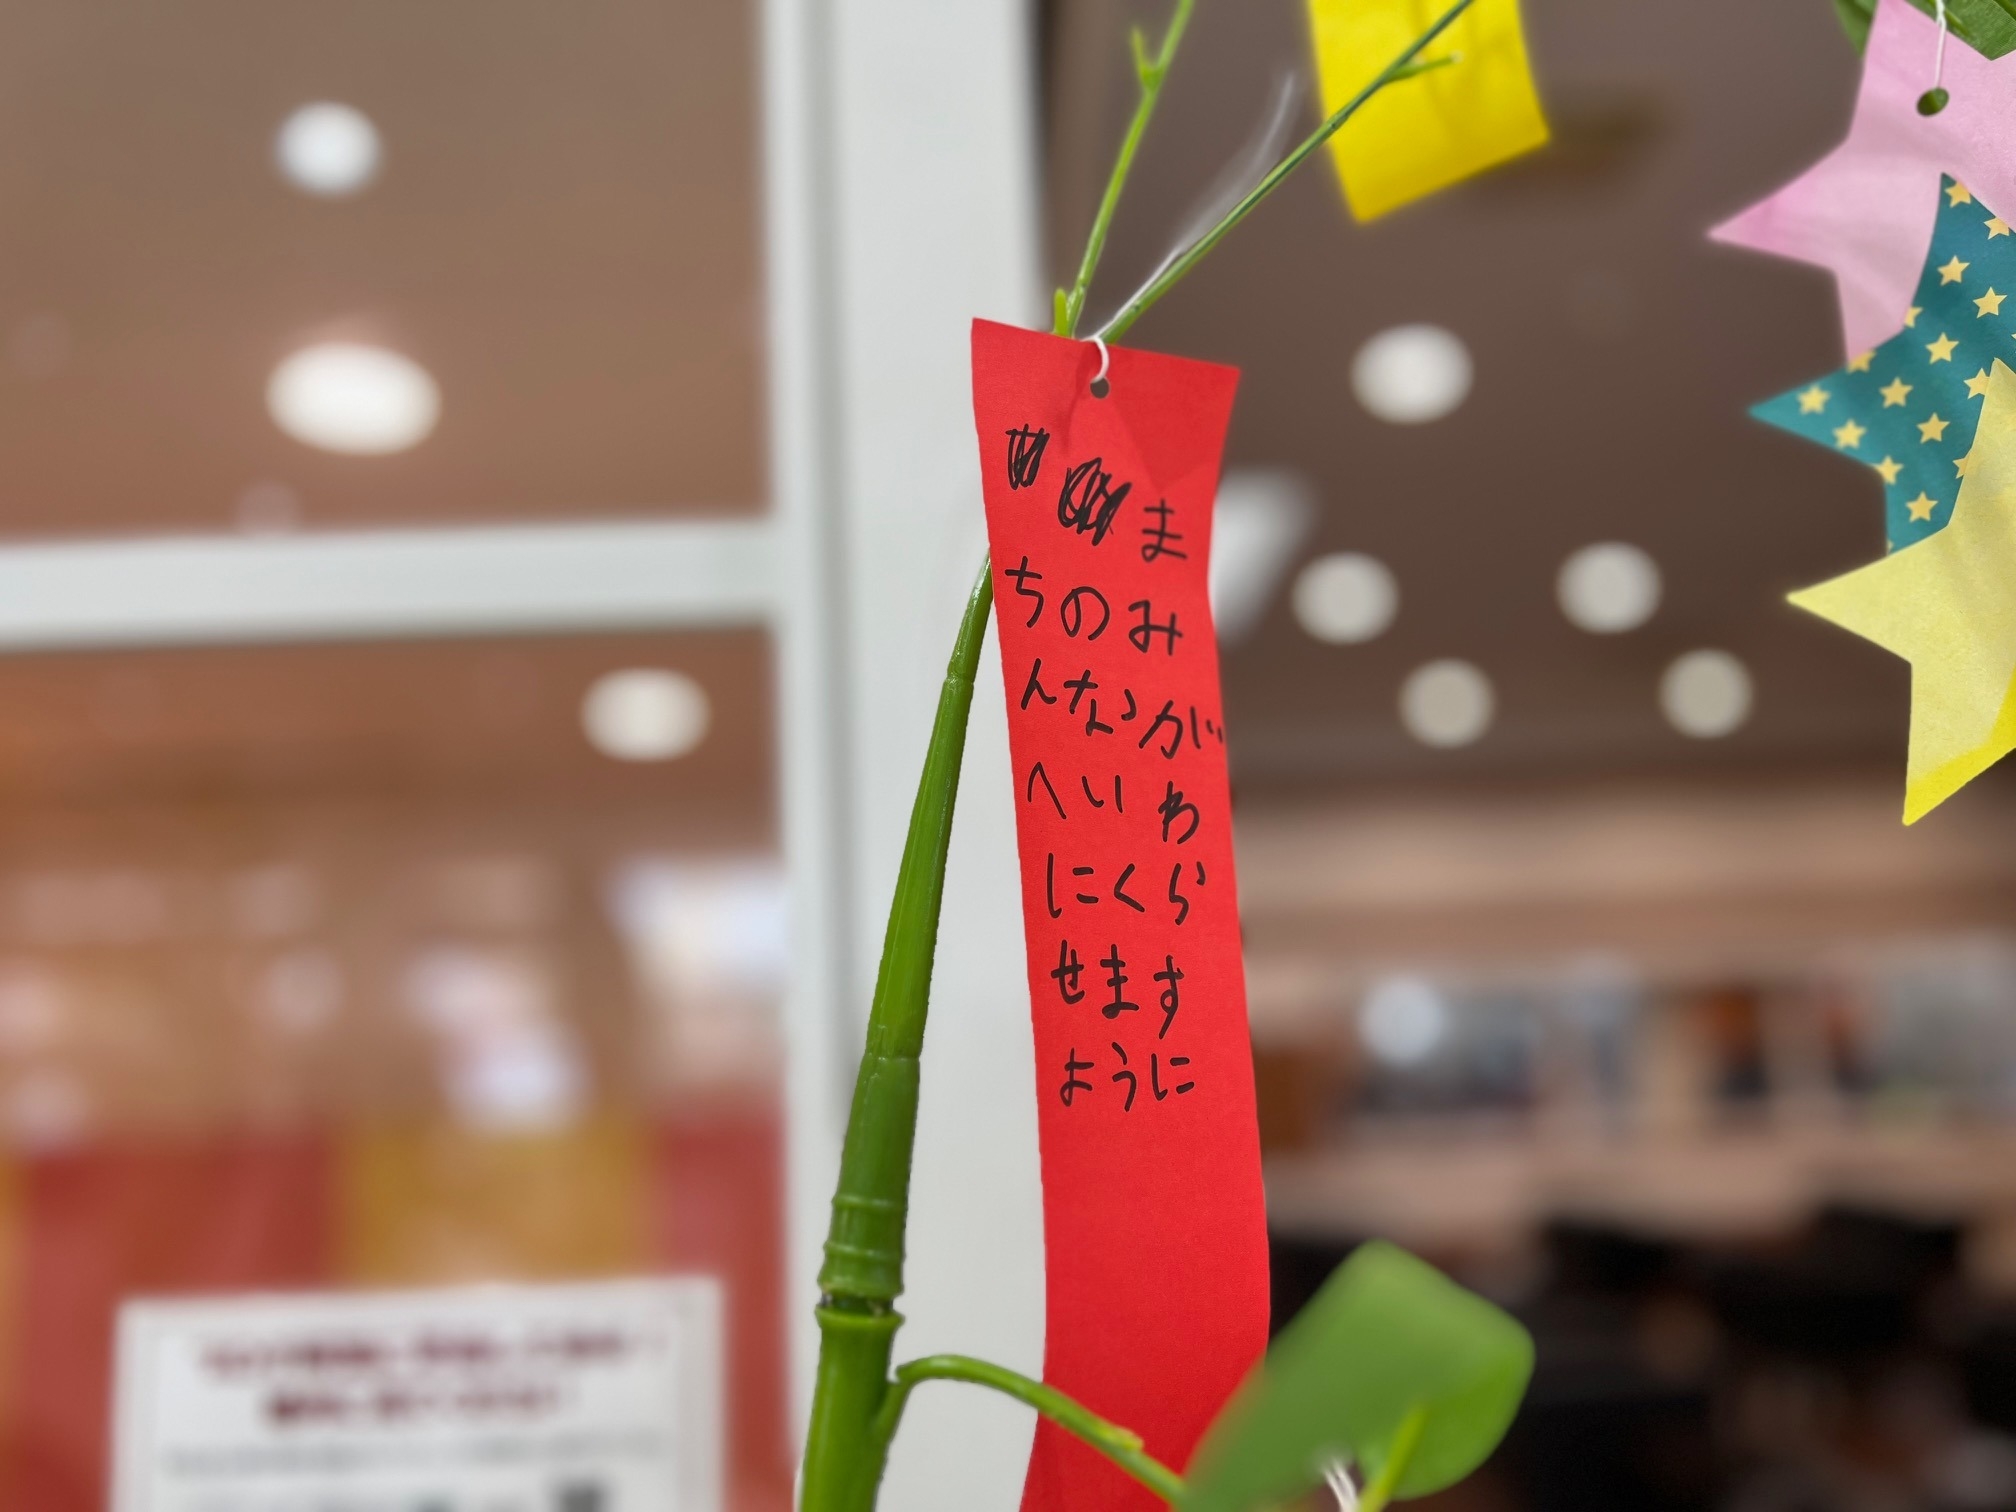 ま
ちのみ
んなが
へいわ
にくら
せます
ように